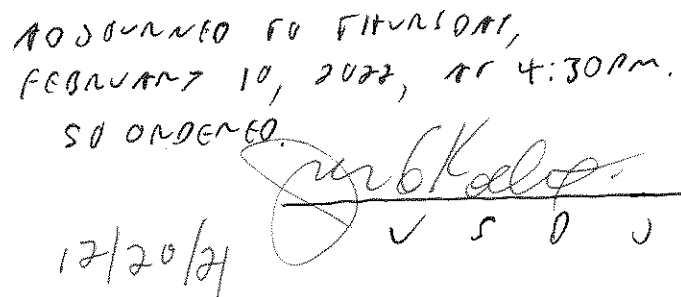 ADJOURNED TO THURSDAY,
FEBRUARY 10, 2022, AT 4:30PM.
SO ORDERED.
USDJ
12/20/21